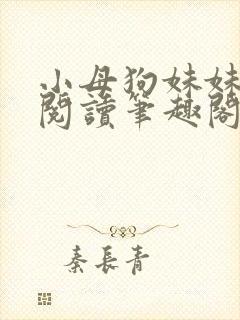 小母狗妹妹
閱讀筆趣閣
秦長青